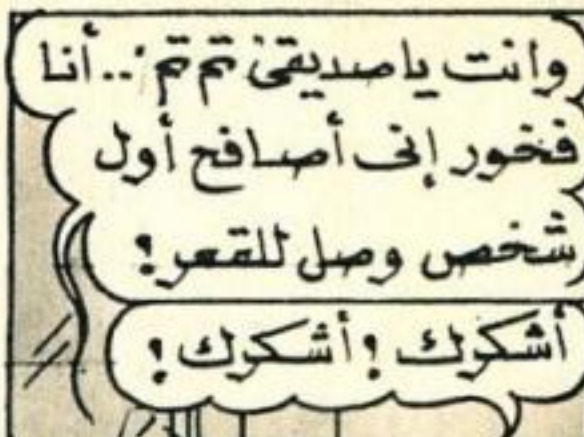 وانت ياصديقى تم تم .. أنا
فخور إنى أصافح أول
شخص وصل للقمر !
أشكرك ! أشكرك !